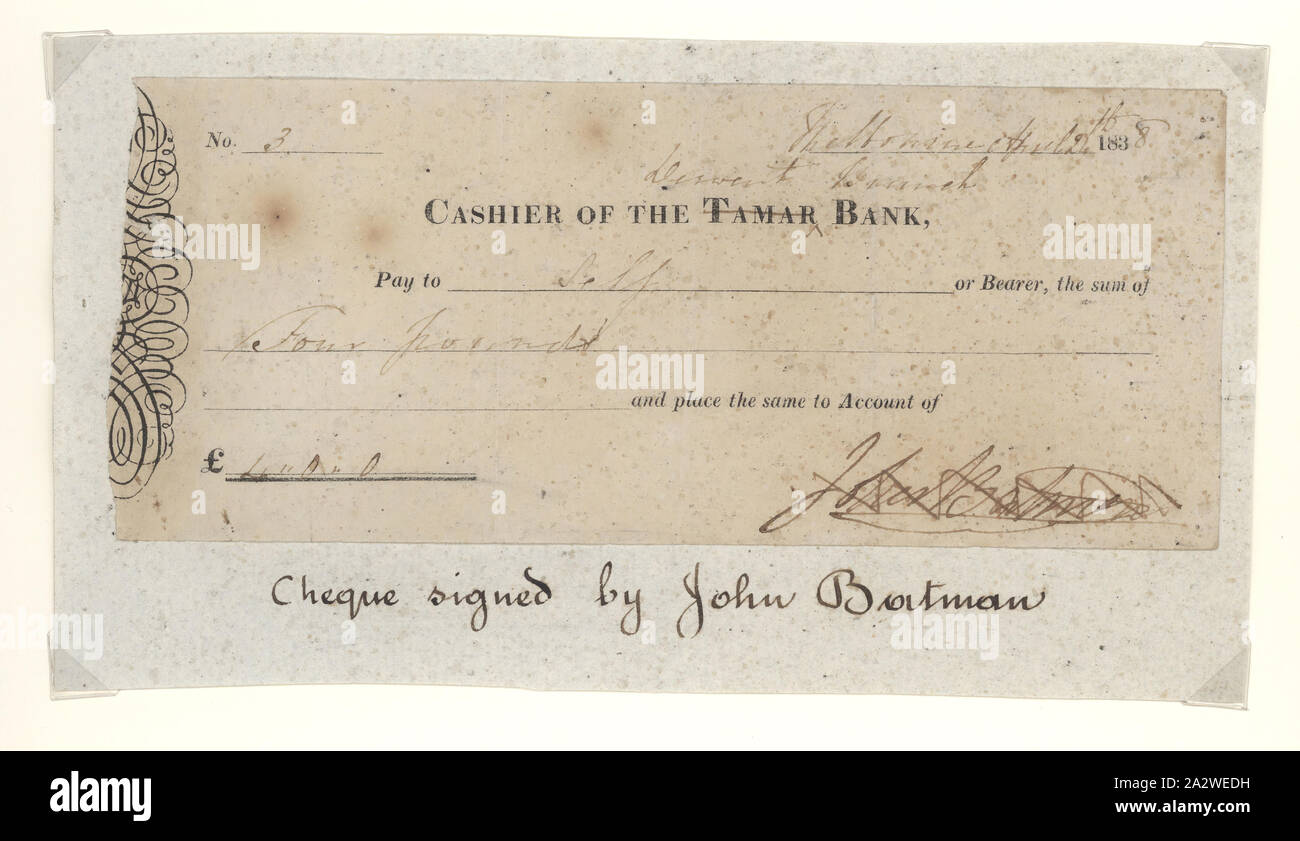 No. 3 Melbourne April 26th 1838
Derwent Branch
CASHIER OF THE TAMAR BANK,
Pay to Self or Bearer, the sum of
Four pounds
and place the same to Account of
£ 4 " 0 " 0
John Batman
Cheque signed by John Batman
a
alamy
a
alamy
a
alamy
alamy
a
alamy
a
alamy
a
alamy
alamy
Image ID: 2A2WEDH
www.alamy.com